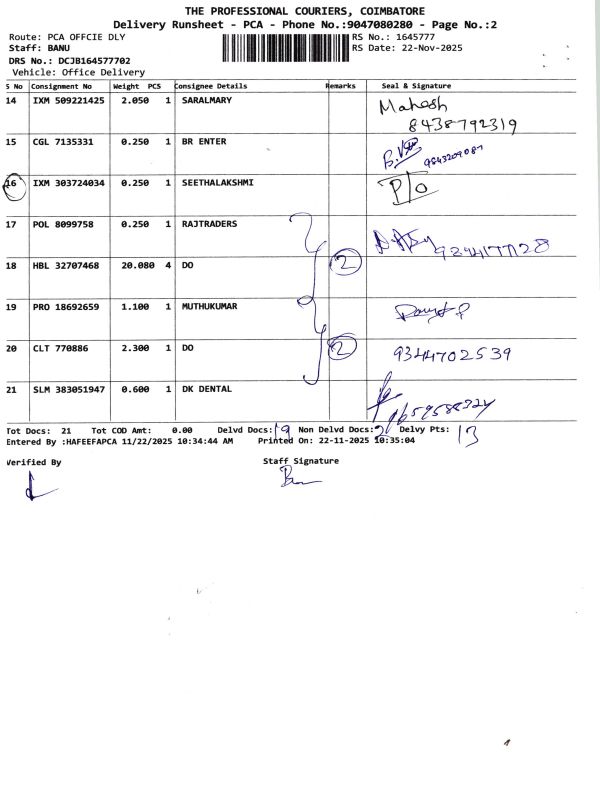 THE PROFESSIONAL COURIERS, COIMBATORE
Delivery Runsheet - PCA - Phone No.:9047080280 - Page No.:2
Route: PCA OFFCIE DLY RS No.: 1645777
Staff: BANU RS Date: 22-Nov-2025
DRS No.: DCJB164577702
Vehicle: Office Delivery
S No Consignment No Weight PCS Consignee Details Remarks Seal & Signature
14 IXM 509221425 2.050 1 SARALMARY Mahesh
8438792319
15 CGL 7135331 0.250 1 BR ENTER
16 IXM 303724034 0.250 1 SEETHALAKSHMI P/o
17 POL 8099758 0.250 1 RAJTRADERS
18 HBL 32707468 20.080 4 DO 2
19 PRO 18692659 1.100 1 MUTHUKUMAR
20 CLT 770886 2.300 1 DO 2 9344702539
21 SLM 383051947 0.600 1 DK DENTAL
Tot Docs: 21 Tot COD Amt: 0.00 Delvd Docs: 19 Non Delvd Docs: 2 Delvy Pts: 13
Entered By :HAFEEFAPCA 11/22/2025 10:34:44 AM Printed On: 22-11-2025 10:35:04
Verified By Staff Signature